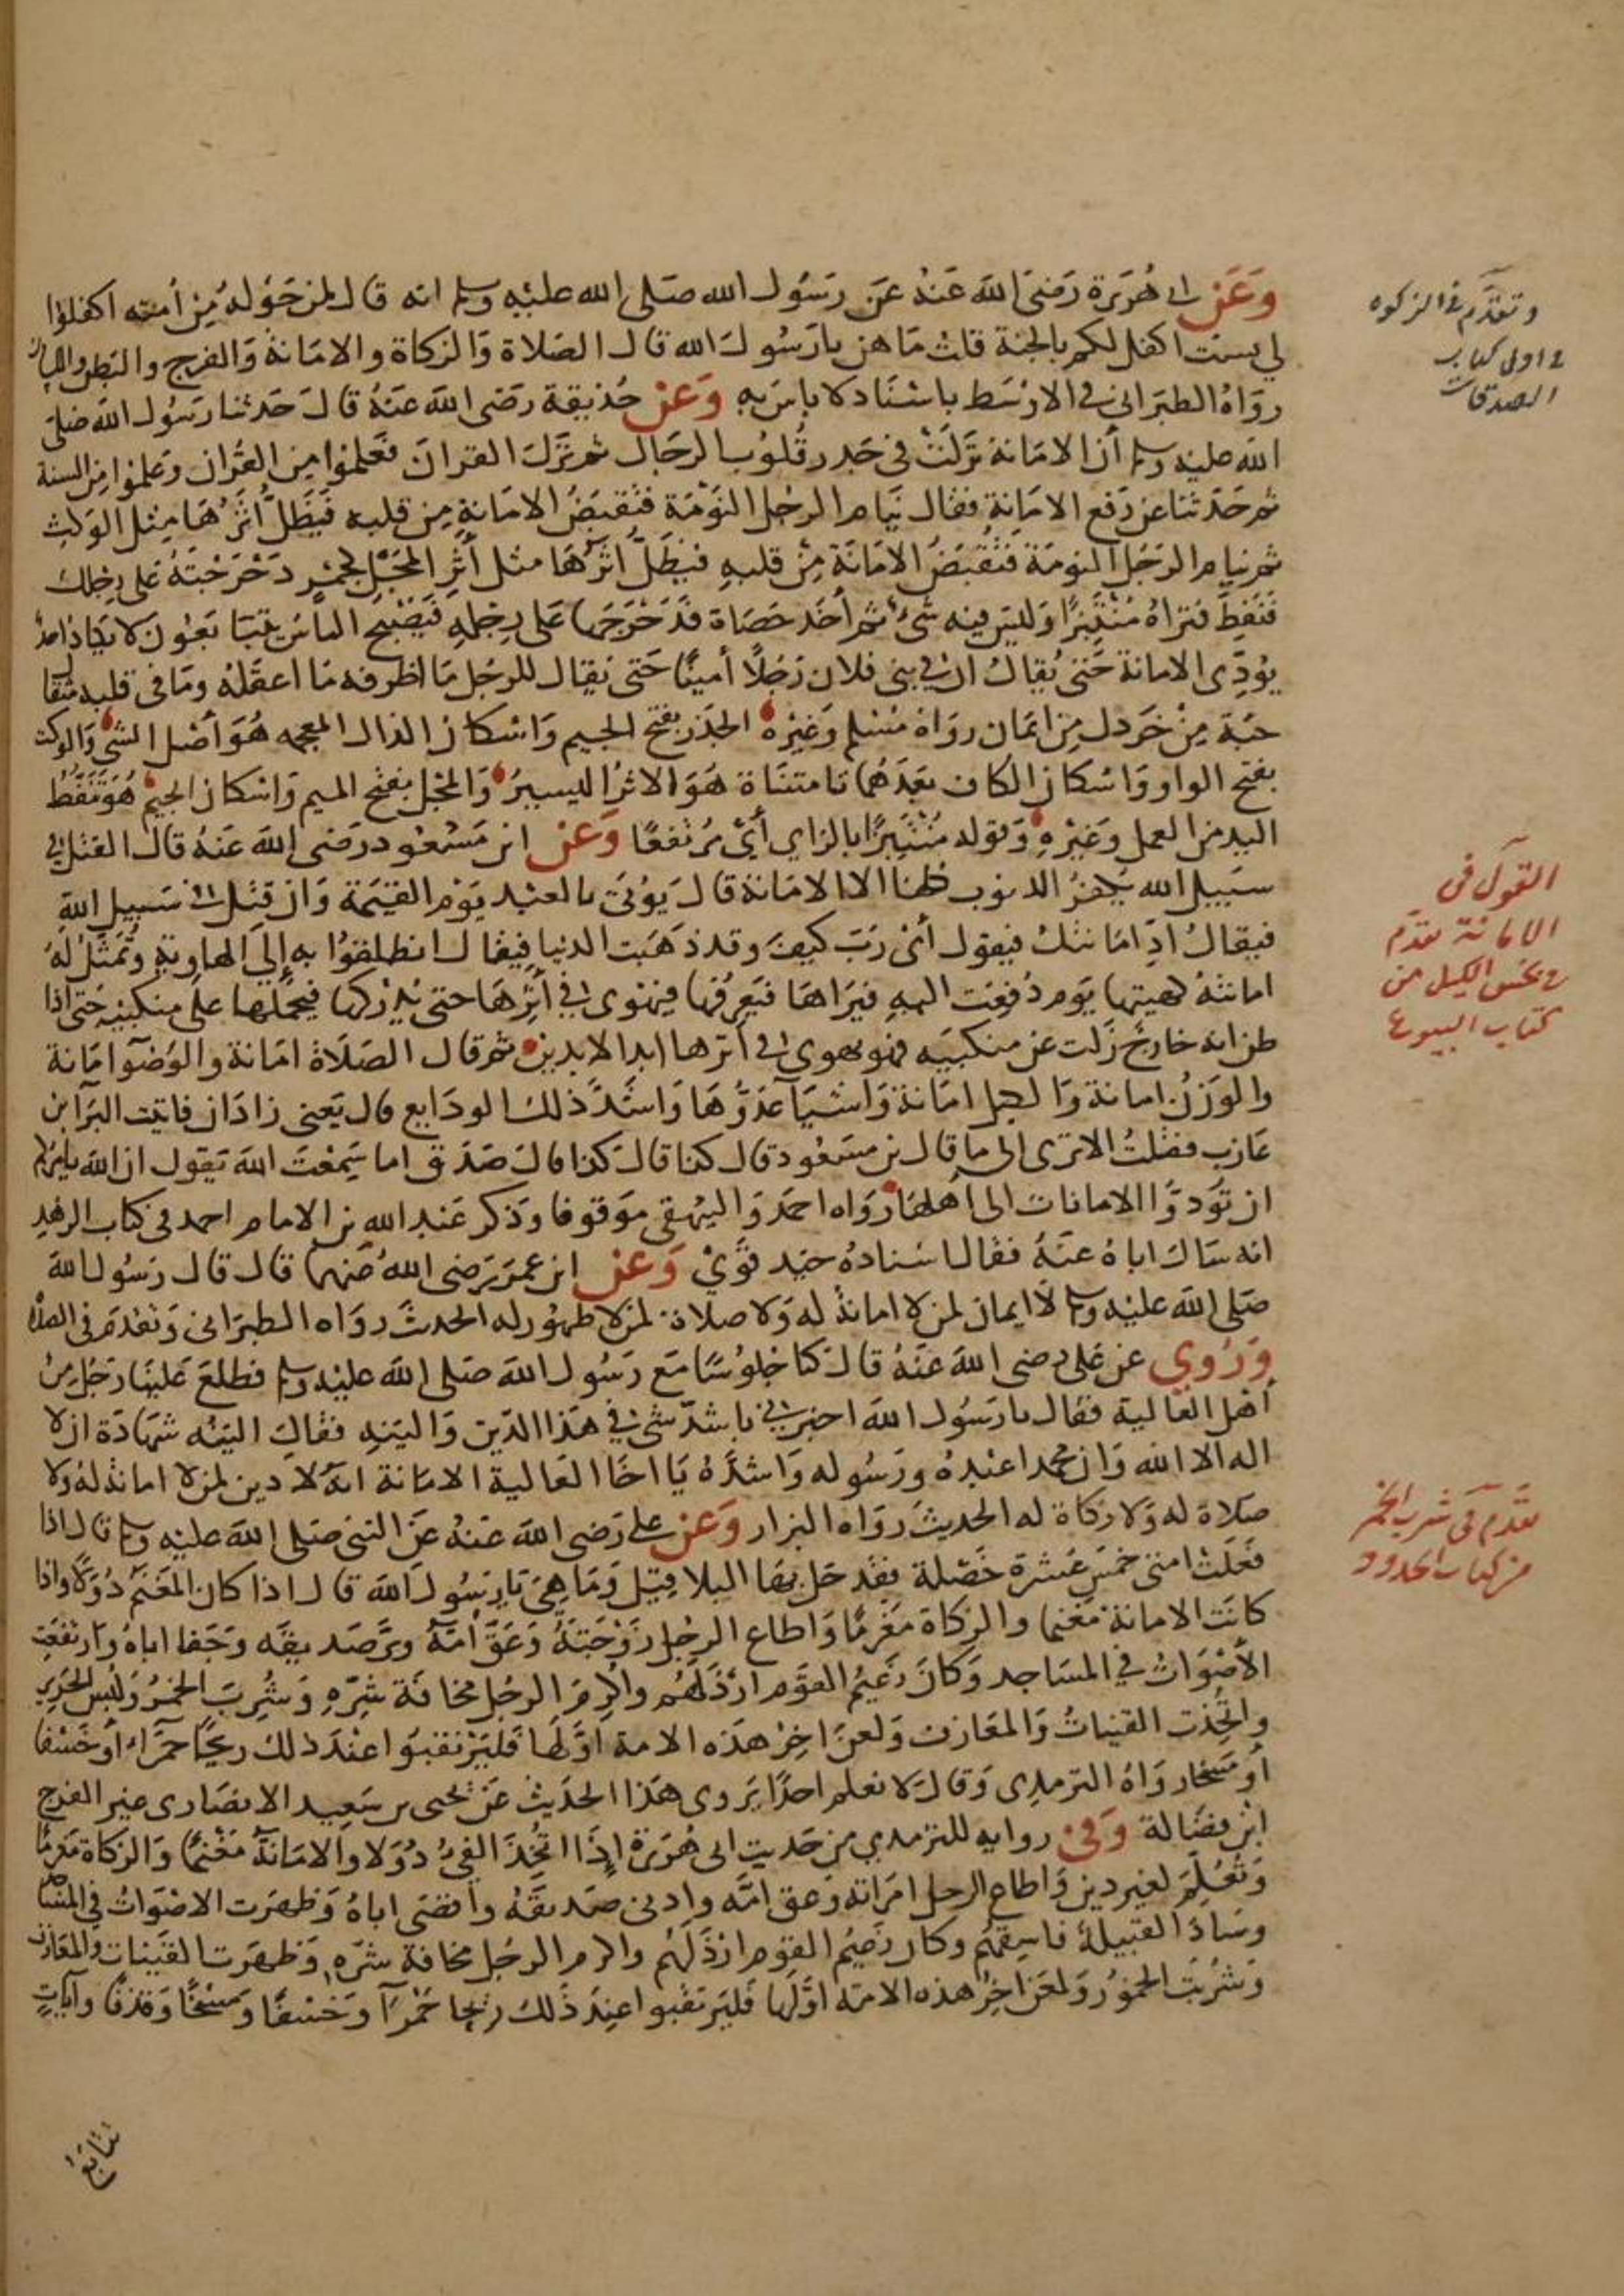 وَعَن ابي هُرَيرَة رَضيَ اللهَ عَنهُ عَن رسَوُل الله صَلى الله عليْهِ وسلم انه قال لمن حَوْلهُ مِن أمته اكفلوا
لي بست اكفل لكم بالجنة قلت مَا هن يا رَسُولَ الله قال الصَلاة وَالزكاة والامَانة وَالفرج والبَطن واللسان
روَاهُ الطبَراني في الاوْسَط باسْنَاد لا باس به وَعَن حُذيفة رَضى الله عَنهُ قالَ حَدثنا رسَوُل الله صَلى
الله عليْه وسلم أن الامَانة نَزلَتْ في جَذر قُلُوب الرجَال ثم نَزَلَ القرانَ فعَلموا مِن القُران وعَلموا مِن السنة
ثم حَدثنا عن رَفع الامَانةِ فقال يَنام الرجُل النَوْمَة فتقبَضُ الامَانةِ مِن قلبه فَيَظَلُّ أثَرُهَا مِثل الوَكتِ
ثم ينام الرَجُل النومَة فتُقبَضُ الامَانَة مِنْ قلبهِ فيَظَلُّ اثرُهَا مثل أثَرِ المَجْل كجَمْرٍ دَحْرَجْتَهُ عَلى رِجلك
فَنَفِطَ فتَراهُ مُنْتَبِرًا وَليسَ فيه شَيْء ثم أخَذ حَصَاة فَدَحْرَجَها عَلى رِجْلهِ فَيُصْبحُ الناسُ يَتَبَايَعُونَ لا يكادُ احدٌ
يؤدِّى الامانة حَتى يُقالُ ان في بني فلان رَجُلاً أمينًا حَتى يُقال للرجُل مَا اظرفه مَا اعقلهُ ومَا فى قلبه مثقال
حَبَّة مِنْ خَردل مِن ايمان روَاهُ مُسْلم وَغَيْرهُ الجَذر بفتح الجيم وَاسْكان الذال المعجمه هُوَ أصْل الشئ وَالوكت
بفتح الواو وَاسْكان الكاف بَعدَهُما تا مثنَاة هُوَ الاثرُ اليسِيرُ وَالمجْل بفتح الميم وَاسْكان الجيم هُوَ تَنَفُّطُ
اليد من العمل وَغَيْرِهِ وَقوله مُنْتَبِرًا بالزاي أيْ مُرْتفعًا وَعَن ابن مَسْعُود رَضى الله عَنهُ قال القتلُ في
سَبيل الله يكفرُ الذنوب كلها الا الامَانة قالَ يُؤتَى بالعبْد يَوْمَ القيٰمَة وَان قتِل في سَبيل اللهِ
فيقالُ ادِّ امَانتكَ فيقول أىْ رَبّ كيفَ وقد ذهَبَت الدنيا فيقال انطلقوُا به إلىَ الهاويةِ وتُمَثَّلُ لهُ
امانتهُ كهيئتها يَوم دُفِعَت اليهِ فيَرَاهَا فَيَعِرفُها فيَهْوِى في أثَرِهَا حتى يُدْرِكَها فيَحْمِلُها عَلى منكبيْه حَتى اذا
ظن انه خارِجٌ زَلت عَن منكبيَه فهو يهوى في أثرها ابد الابدين ثم قال الصَلاة امَانة والوُضوُ امَانة
والوَزنُ امانة وَالكيل امَانة وَاشيَا عَدَّهَا وَاشَدّ ذلك الودَايع قال يَعني زاذَان فاتيت البَرَا بن
عَازب فقلتُ الا ترى الى ما قال بن مسعُود قال كذا قالَ كذا قالَ صَدَق اما سَمِعْتَ الله يَقول ان الله يأمركم
ان تُودوَّا الامانات الى أهلهَا رَوَاه احمَد وَالبيهقى مَوقوفا وَذكر عَبد الله بن الامام احمد فى كتاب الزهد
انه سَالَ اباهُ عنهُ فقال اسْنادهُ جيد قَوِيٌّ وَعن ابن عمَرَ رَضى اللهُ عَنهما قال قال رَسُول الله
صَلى الله عليْه وسلم لاَ ايمان لمن لا امانة له وَلا صلاة لمن لا طهُور له الحدث روَاه الطبَرانى وَتقدم فى الصلاة
وَرُوِي عَن عَلى رضى الله عَنهُ قالَ كنا جلوُسًا مَع رَسُول الله صَلى الله عليْه وسلم فطلعَ عَلينَا رَجُل مِنْ
أهْل العَالية فقال يا رَسُول الله اخبرني باشدّ شئ في هَذا الدّين وَالينهِ فقالَ الينُه شهَادَة ان لا
اله الا الله وَان محمدا عبْدهُ ورَسُوله وَاشدَّهُ يَا اخَا العَالية الامَانة انهُ لا دين لمن لا امانة لهُ ولا
صَلاة له وَلا زكاة له الحديث روَاه البزار وَعَن على رَضى الله عَنهُ عَن النبى صَلى الله عليْه وسلم قال اذا
فعَلَتْ امتى خمسَ عَشرة خَصْلة فقد حَل بهَا البلا قيل وَمَا هىَ يَا رسَوُل الله قال اذا كان المَغنَم دُوَلًا واذا
كانَت الامانة مَغنما والزكاة مَغْرمًا وَاطاع الرجُل زَوْجَتهُ وَعَقَّ أمَّهُ وبَرَّ صَديقهُ وجَفا اباهُ وَارتفعَت
الأصْوَاتُ في المسَاجد وَكانَ زَعيْمُ القوْم ارْذَلَهُم واكْرِمَ الرجُل مخافَة شرِّهِ وَشُرِبَ الخمرُ وَلُبسَ الحَرير
واتُّخِذت القيناتُ وَالمعَازف وَلعَنَ اخِرُ هَذه الامة اوَّلهَا فَليَرْتَقبُوا عنْدَ ذلك ريحًا حمرَاء أو خَسْفا
أو مَسْخا روَاهُ الترمذى وَقالَ لا نعلم احدًا يَروى هَذا الحدَيثَ عَن يَحيى بن سَعِيد الانصَارى غير الفرج
ابْن فضَالة وَفي رواية للترمذي من حَديث ابى هُرَيرَة إذَا اتُّخِذَ الفيْءُ دُوَلا والامَانةُ مَغْنمًا وَالزكاة مَغرمًا
وَتُعُلِّمَ لغير دين وَاطاع الرجل امرَاته وعَق امَّه وادنى صَديقهُ واقصَى اباهُ وَظهَرَت الاصْوَاتُ فى المسَاجد
وسَادَ القبيلةَ فاسِقُهُم وكان زَعيْم القوم ارْذَلَهُم واكرم الرجُل مخافة شرّهِ وَظهرَت القَينات والمعَازف
وَشُرْبَت الخمُورُ وَلعَنَ اخِرُ هذه الامّة اوَّلَها فَليَرتقبوا عندَ ذَلكَ ريحا حَمْرَآ وَخَسْفًا وَمَسْخًا وَقذفًا وآياتٍ
تتابَعُ
وتقدم في الزكوه
في اول كتاب
الصدقات
القول في
الامانة تقدم
في بخس الكيل من
كتاب البيوع
تقدم في شرب الخمر
من كتاب الحدود